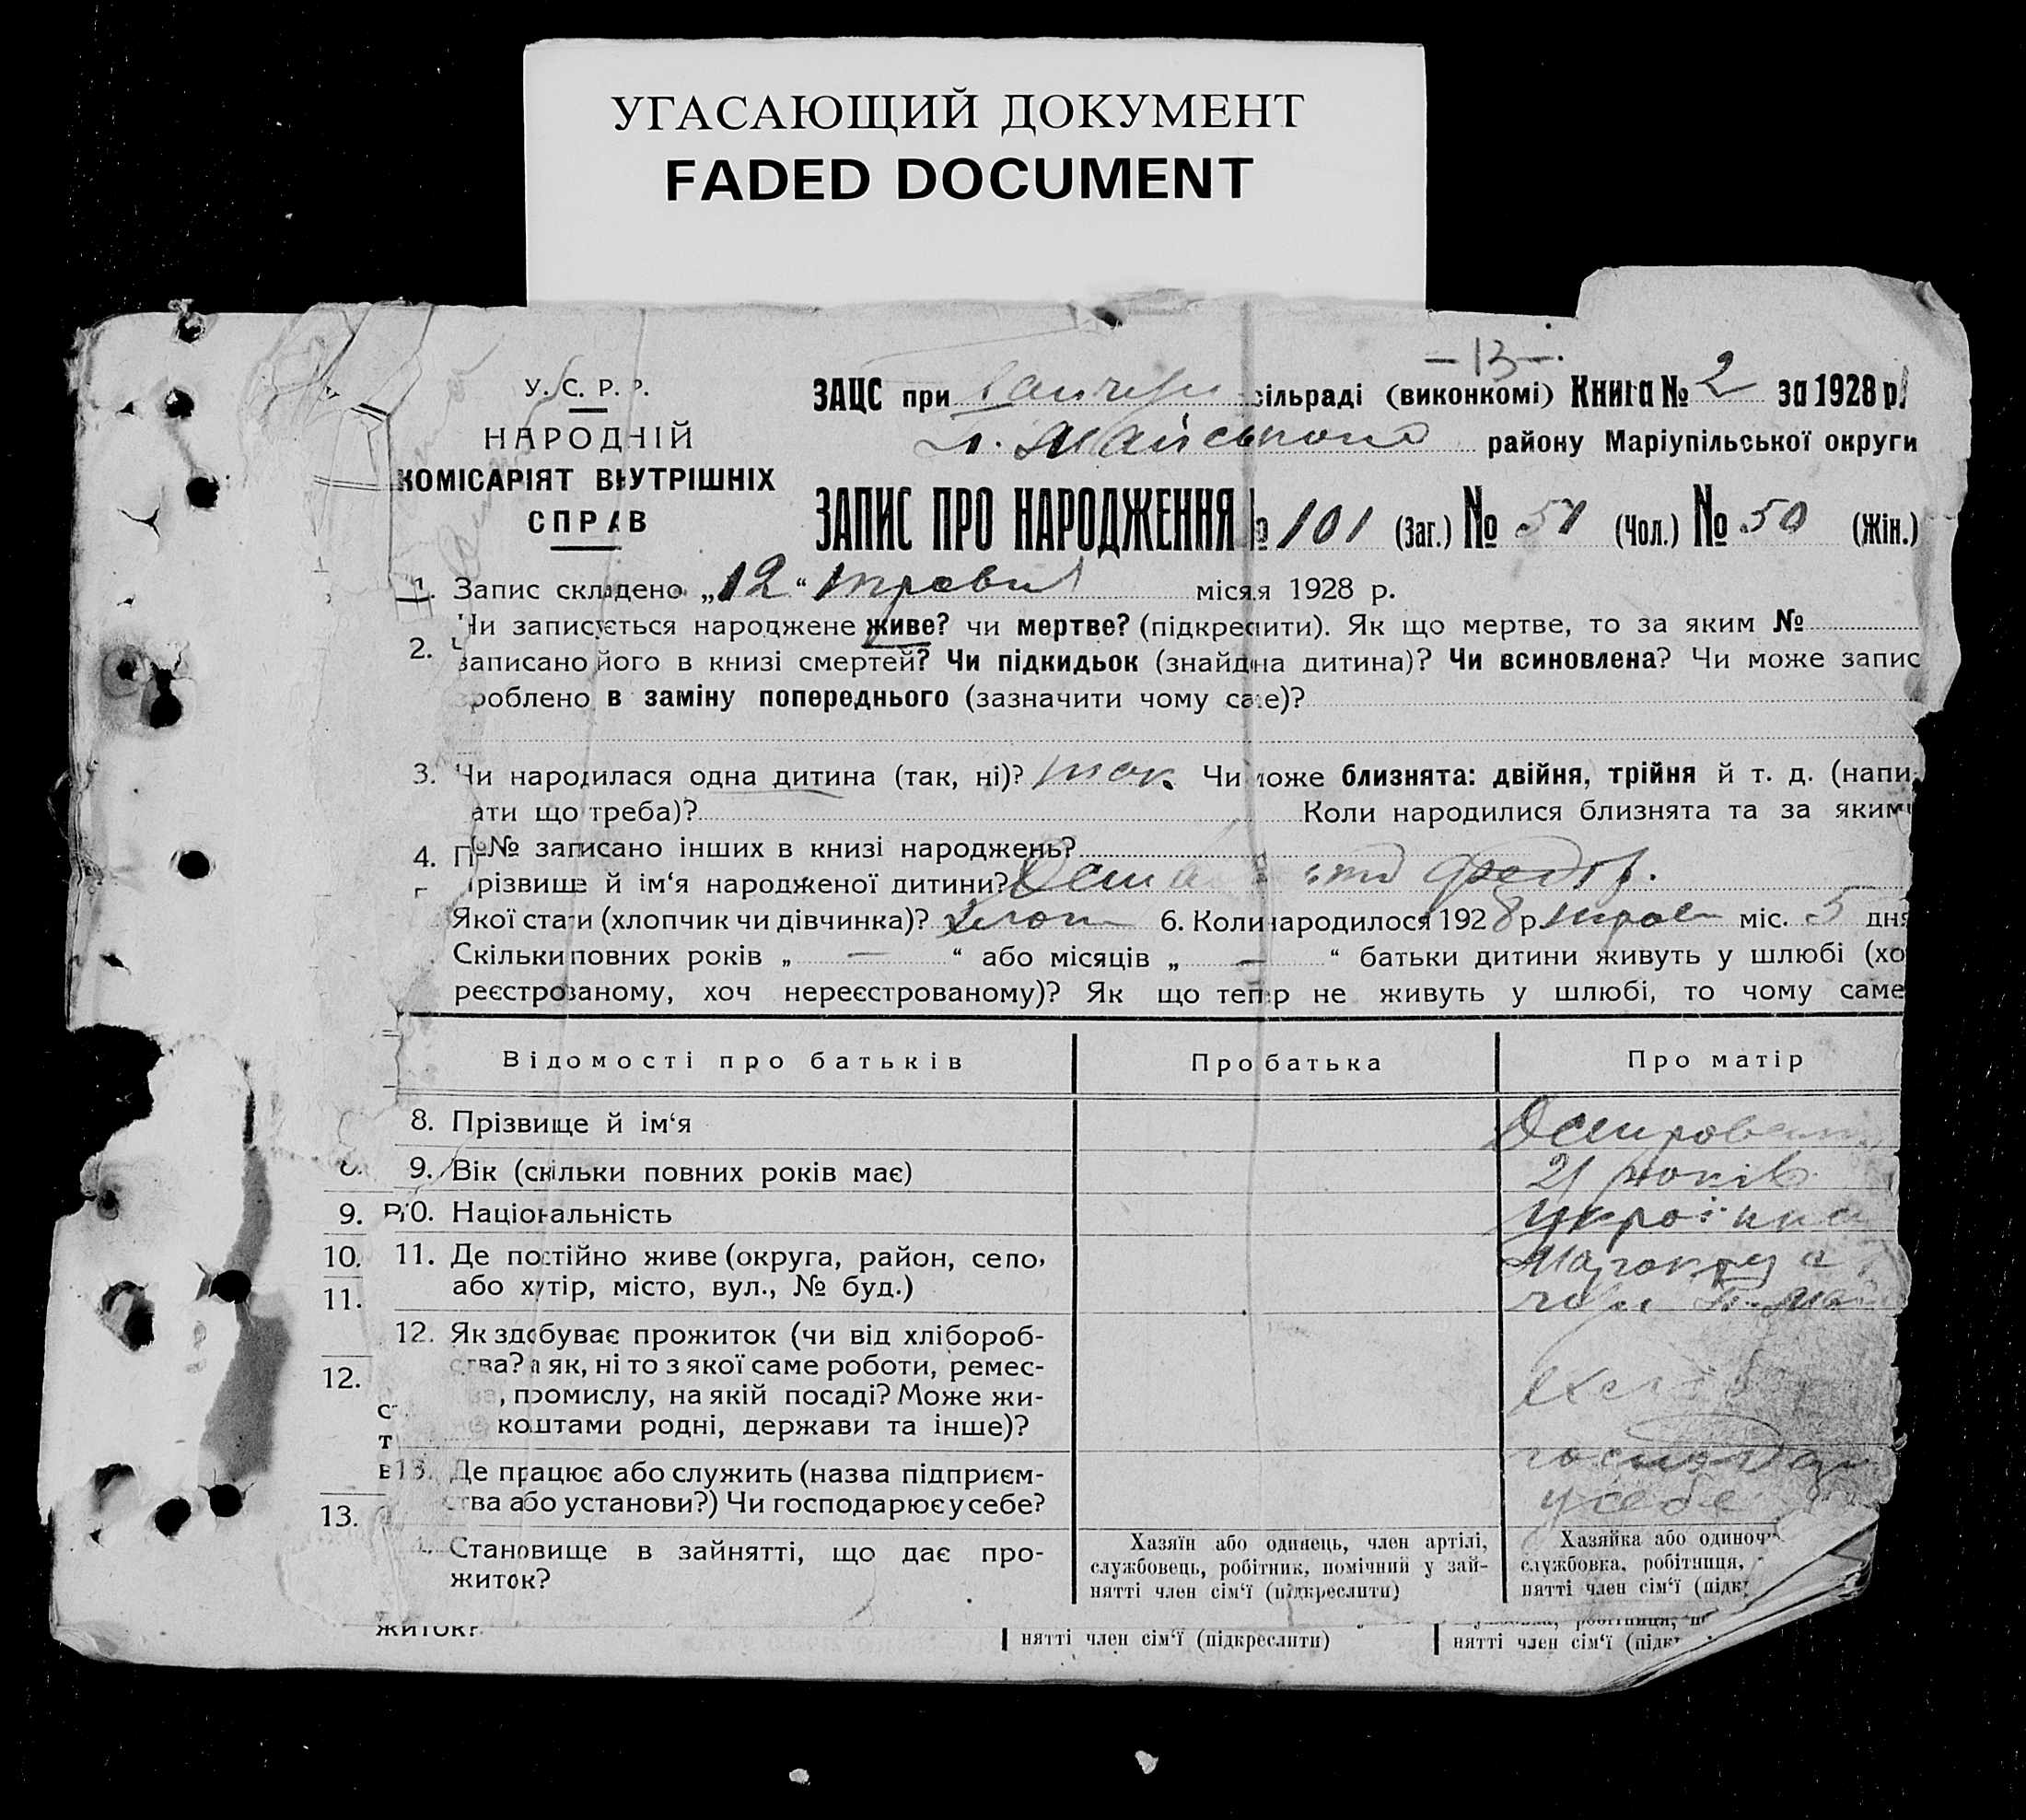 УГАСАЮЩИЙ ДОКУМЕНТ
FADED DOCUMENT
—13—
У. С. Р. Р.
НАРОДНІЙ
КОМІСАРІЯТ ВНУТРІШНІХ
СПРАВ
ЗАЦС при сільраді (виконкомі) Книга № 2 за 1928 р.
П. Майського району Маріупільської округи
ЗАПИС ПРО НАРОДЖЕННЯ № 101 (Заг.) № 51 (Чол.) № 50 (Жін.)
1. Запис складено „12“ травня місяя 1928 р.
2. Чи записується народжене живе? чи мертве? (підкреслити). Як що мертве, то за яким №
записано його в книзі смертей? Чи підкидьок (знайдена дитина)? Чи всиновлена? Чи може запис
зроблено в заміну попереднього (зазначити чому саме)?
3. Чи народилася одна дитина (так, ні)? так. Чи може близнята: двійня, трійня й т. д. (напи-
ати що треба)? Коли народилися близнята та за якими
4. №№ записано інших в книзі народжень?
Прізвище й ім‘я народженої дитини? Федір.
Якої стати (хлопчик чи дівчинка)? Хлоп 6. Коли народилося 1928 р. трав міс. 5 дня
Скільки повних років „ — “ або місяців „ — “ батьки дитини живуть у шлюбі (хо
реєстрованому, хоч нереєстрованому)? Як що тепер не живуть у шлюбі, то чому саме
Відомості про батьків Про батька Про матір
8. Прізвище й ім‘я
9. Вік (скільки повних років має) 21 років
10. Національність українка
11. Де постійно живе (округа, район, село,
або хутір, місто, вул., № буд.)
12. Як здобуває прожиток (чи від хлібороб-
ства? а як, ні то з якої саме роботи, ремес-
, промислу, на якій посаді? Може жи-
коштами родні, держави та інше)?
13. Де працює або служить (назва підприєм-
ства або установи?) Чи господарює у себе?
господар
у себе
Становище в зайнятті, що дає про-
житок?
Хазяїн або одинець, член артілі,
службовець, робітник, помічний у зай-
нятті член сім‘ї (підкреслити)
Хазяйка або одиноч
службовка, робітниця,
нятті член сім‘ї (підк
9.
10.
11.
12.
13.
житок?
нятті член сім‘ї (підкреслити)
нятті член сім‘ї (підк